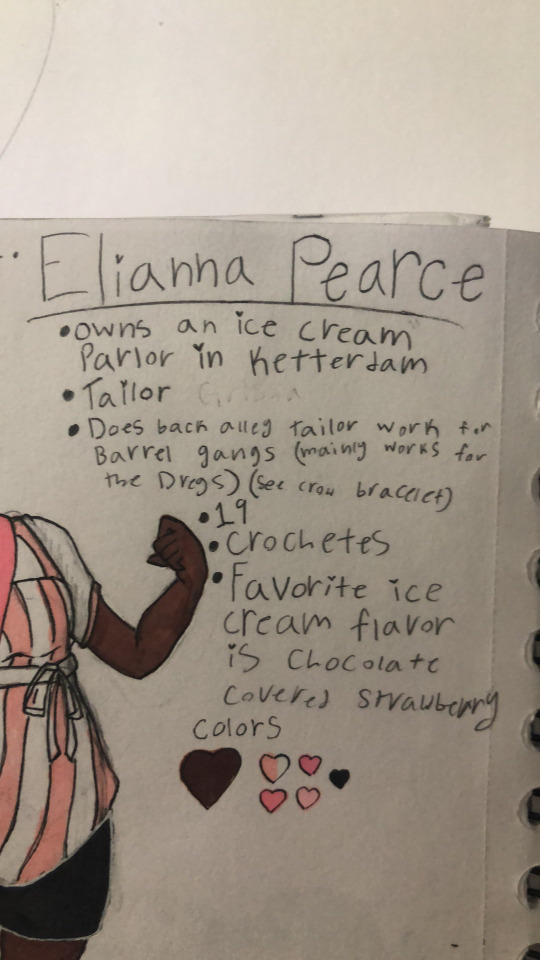 Elianna Pearce
•owns an ice cream
Parlor in Ketterdam
•Tailor
•Does back alley tailor work for
Barrel gangs (mainly works for
the Dregs) (see crow bracelet)
•19
•Crochetes
•Favorite ice
cream flavor
is chocolate
covered strawberry
colors